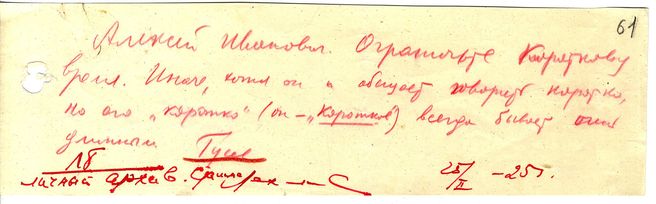 61
Алексей Иванович. Ограничьте Короткову
время. Иначе, хотя он и обещает говорить коротко,
но его „коротко" (он – „Коротков") всегда бывает очень
длинным Гусев
ЛБ
личный архив.
25/II –25г.